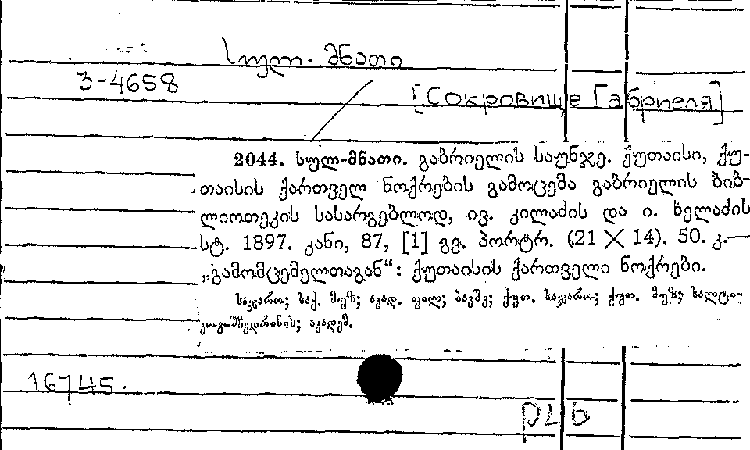 სულ. მნათი
3-4658
[Сокровище Габриеля]
2044. სულ-მნათი. გაბრიელის საუნჯე. ქუთაისი, ქუ-
თაისის ქართველ ნოქრების გამოცემა გაბრიელის ბიბ-
ლიოთეკის სასარგებლოდ, ივ. კილაძის და ი. ხელაძის
სტ. 1897. კანი, 87, [1] გვ. პორტრ. (21 X 14). 50. კ.—
„გამომცემელთაგან“: ქუთაისის ქართველი ნოქრები.
საჯარო; საქ. მუზ; აკად. ფილ; ქუთ. საჯარო; ქუთ. მუზ;
აკადემ.
16745.